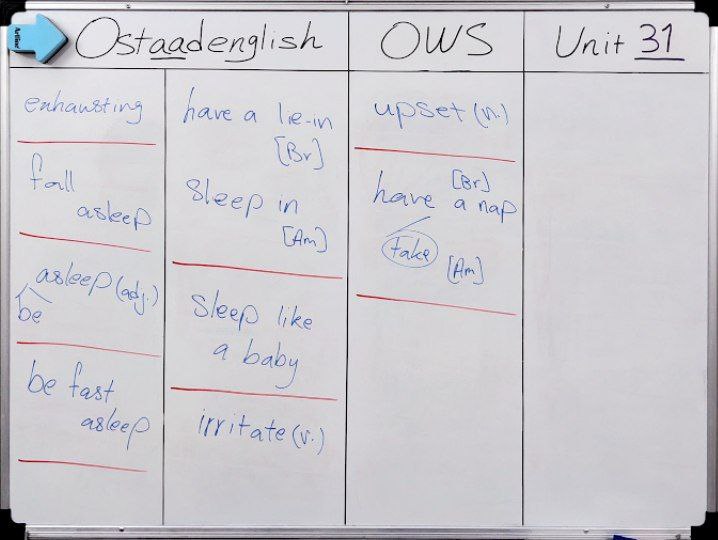 Artline
Ostaadenglish
OWS
Unit 31
exhausting
fall
asleep
asleep (adj.)
be
be fast
asleep
have a lie-in
[Br]
sleep in
[Am]
sleep like
a baby
irritate (v.)
upset (v.)
[Br]
have a nap
take
[Am]